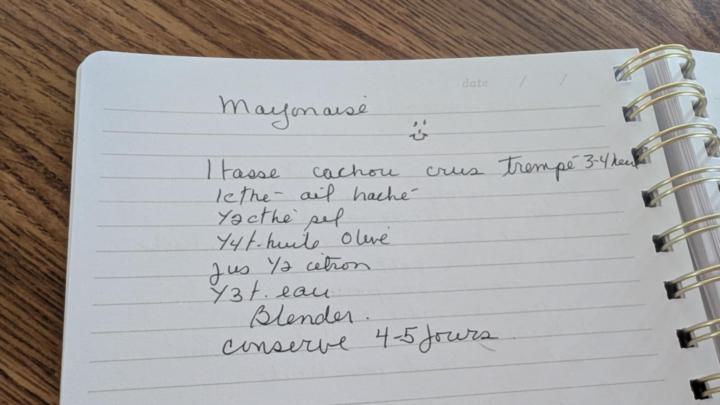 date / /
Mayonaise
1 tasse cachou crus trempé 3-4 heu
1c thé - ail haché
1/2 c thé sel
1/4 t. huile Olive
jus 1/2 citron
1/3 t. eau
Blender.
conserve 4-5 jours.